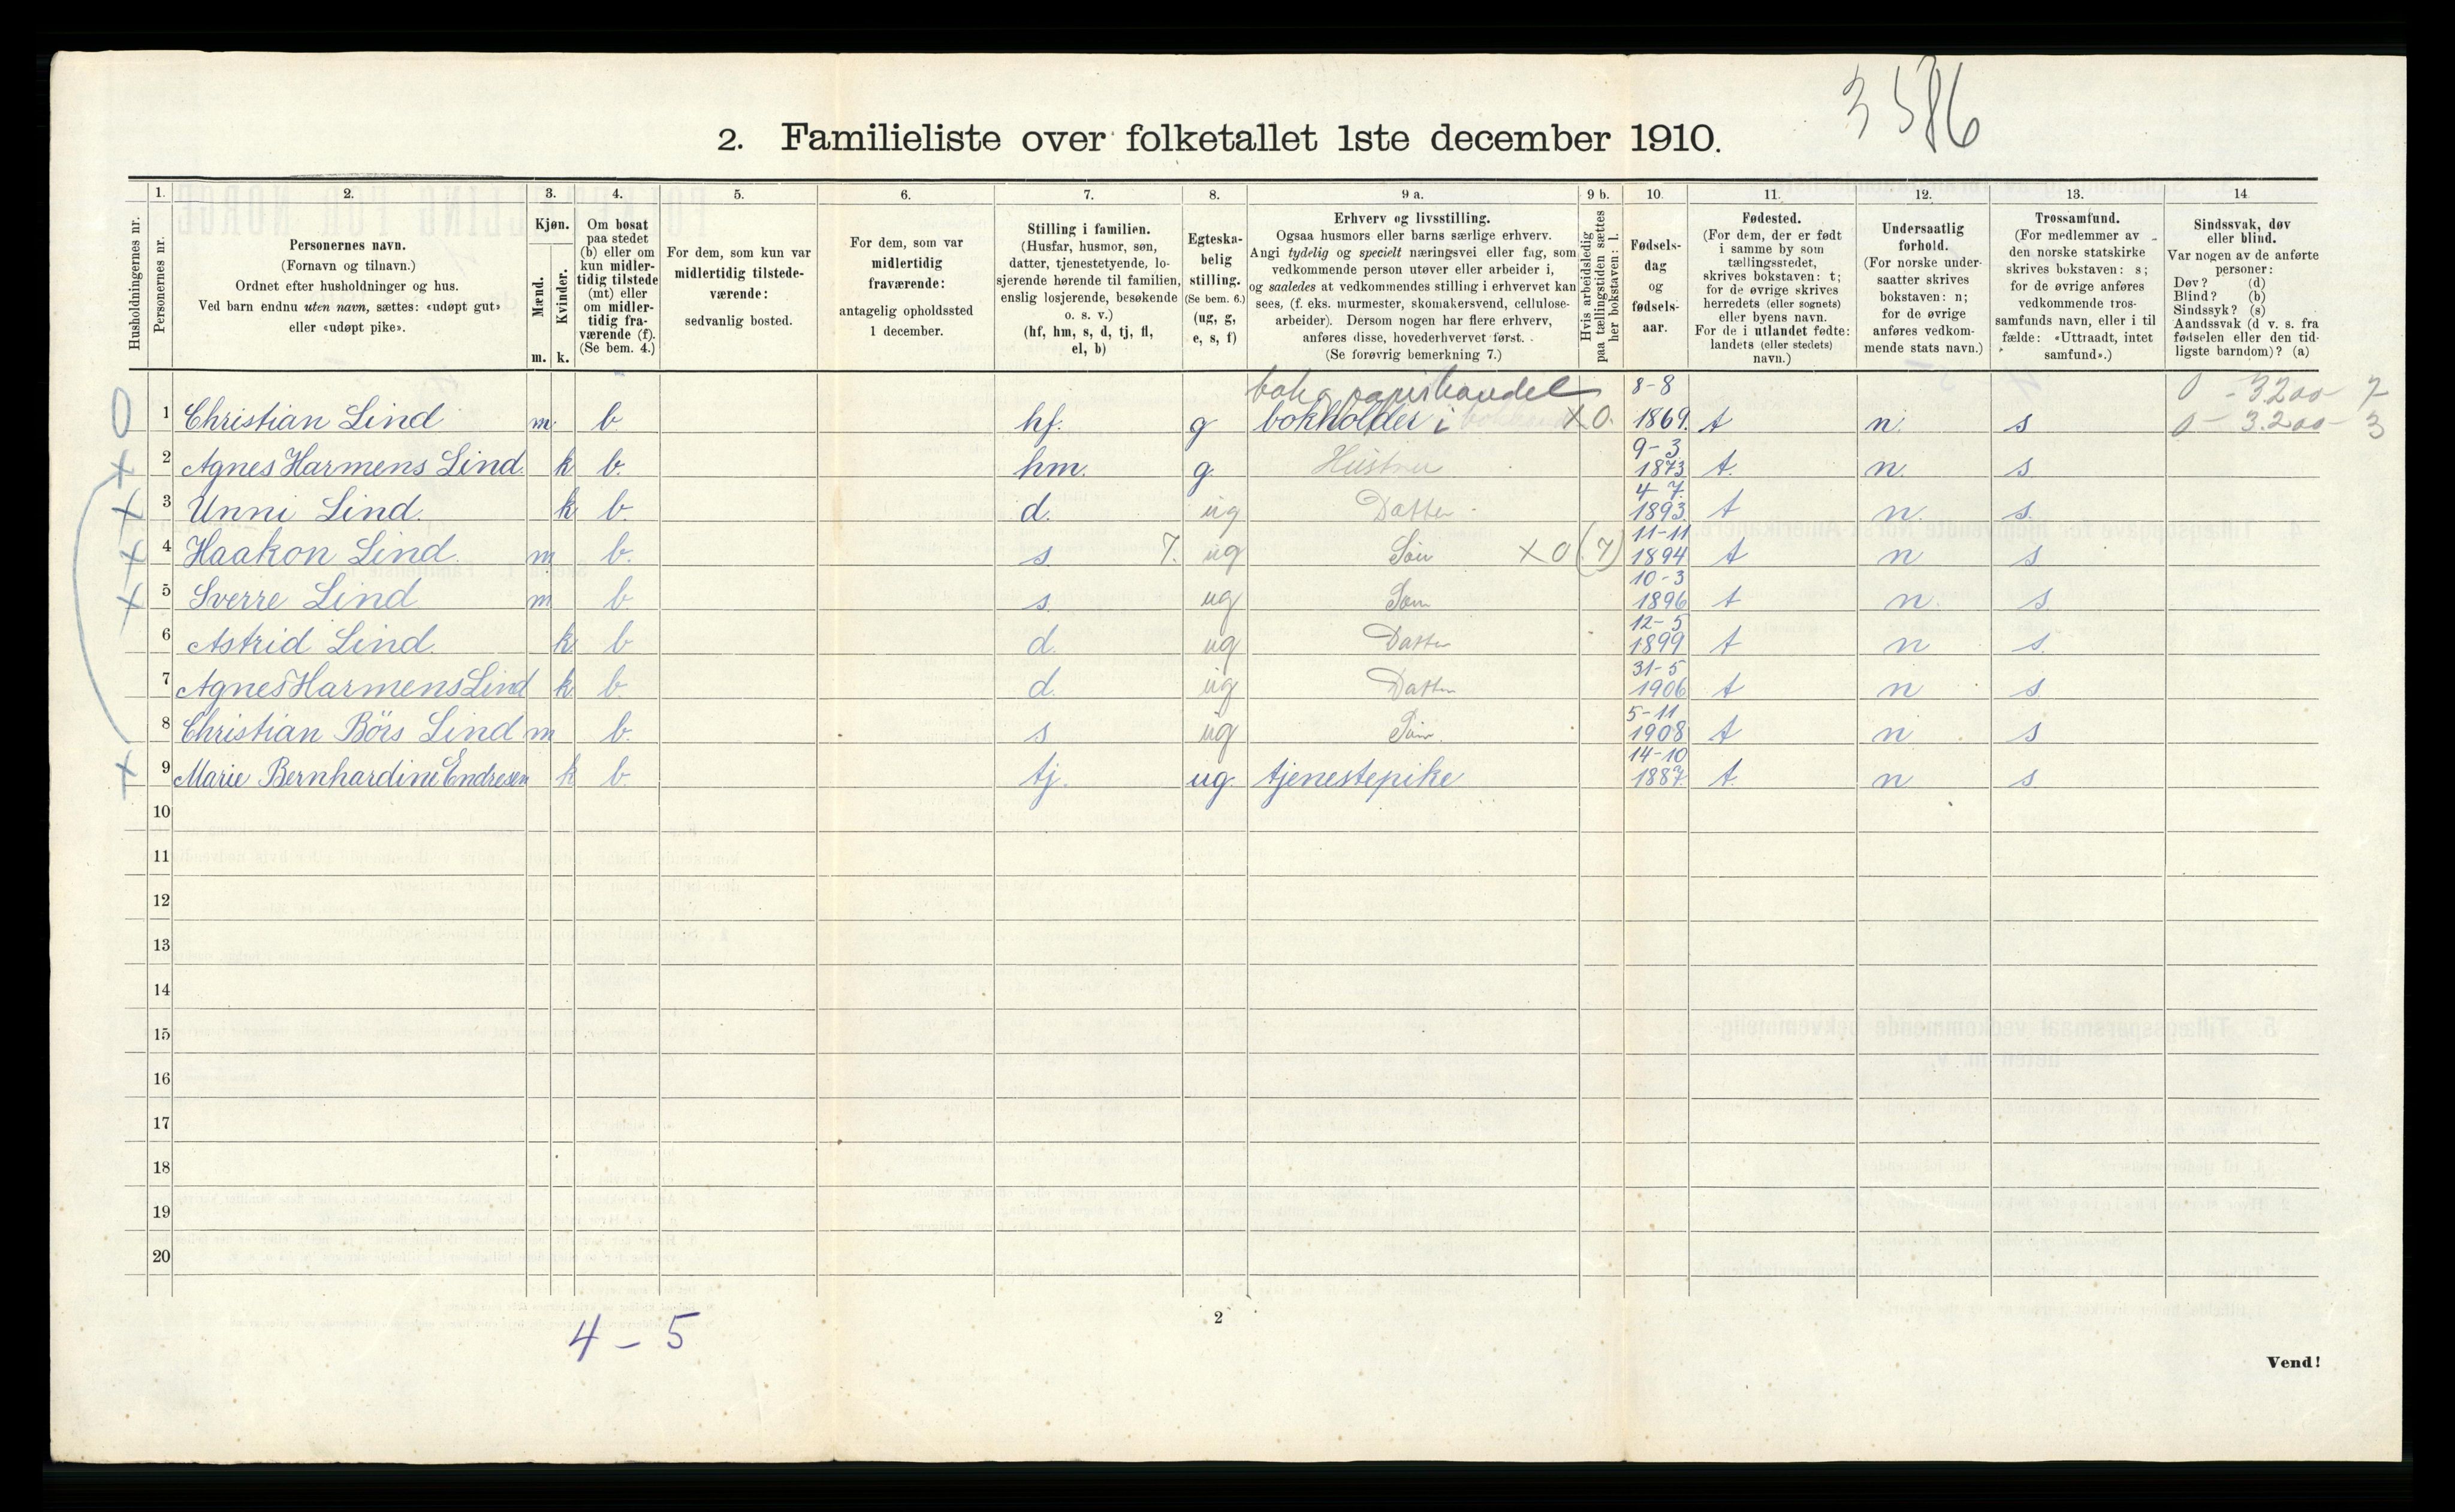 3586
2. Familieliste over folketallet 1ste december 1910.
Husholdningernes nr.
1.
Personernes nr.
2.
Personernes navn.
(Fornavn og tilnavn.)
Ordnet efter husholdninger og hus.
Ved barn endnu uten navn, sættes: «udøpt gut»
eller «udøpt pike».
3.
Kjøn.
Mænd.
Kvinder.
m. k.
4.
Om bosat
paa stedet
(b) eller om
kun midler-
tidig tilstede
(mt) eller
om midler-
tidig fra-
værende (f).
(Se bem. 4.)
5.
For dem, som kun var
midlertidig tilstede-
værende:
sedvanlig bosted.
6.
For dem, som var
midlertidig
fraværende:
antagelig opholdssted
1 december.
7.
Stilling i familien.
(Husfar, husmor, søn,
datter, tjenestetyende, lo-
sjerende hørende til familien,
enslig losjerende, besøkende
o. s. v.)
(hf, hm, s, d, tj, fl,
el, b)
8.
Egteska-
belig
stilling.
(Se bem. 6.)
(ug, g,
e, s, f)
9 a.
Erhverv og livsstilling.
Ogsaa husmors eller barns særlige erhverv.
Angi tydelig og specielt næringsvei eller fag, som
vedkommende person utøver eller arbeider i,
og saaledes at vedkommendes stilling i erhvervet kan
sees, (f. eks. murmester, skomakersvend, cellulose-
arbeider). Dersom nogen har flere erhverv,
anføres disse, hovederhvervet først.
(Se forøvrig bemerkning 7.)
9 b.
Hvis arbeidsledig
paa tællingstiden sættes
her bokstaven: l.
10.
Fødsels-
dag
og
fødsels-
aar.
11.
Fødested.
(For dem, der er født
i samme by som
tællingsstedet,
skrives bokstaven: t;
for de øvrige skrives
herredets (eller sognets)
eller byens navn.
For de i utlandet fødte:
landets (eller stedets)
navn.)
12.
Undersaatlig
forhold.
(For norske under-
saatter skrives
bokstaven: n;
for de øvrige
anføres vedkom-
mende stats navn.)
13.
Trossamfund.
(For medlemmer av
den norske statskirke
skrives bokstaven: s;
for de øvrige anføres
vedkommende tros-
samfunds navn, eller i til
fælde: «Uttraadt, intet
samfund».)
14
Sindssvak, døv
eller blind.
Var nogen av de anførte
personer:
Døv? (d)
Blind? (b)
Sindssyk? (s)
Aandssvak (d v. s. fra
fødselen eller den tid-
ligste barndom)? (a)
bok & papirhandel 8-8 0 - 3200 - 7
0 1 Christian Lind m. b. hf. g bokholder i X0. 1869. t n. s 0 - 3.200 - 3
9-3
X 2 Agnes Harmens Lind. k b. hm. g. Hustru 1873 t. n. s
4-7.
X 3 Unni Lind. k b. d. ug Datter 1893. t n. s.
11-11
X 4 Haakon Lind. m b. s. 7. ug Søn X0 (7) 1894 t n s
10-3
X 5 Sverre Lind m b. s. ug Søn 1896 t n. s.
12-5
6 Astrid Lind. k b d. ug Datter 1899 t n s.
31-5
7 Agnes Harmens Lind k b. d. ug Datter 1906 t n s.
5-11
8 Christian Börs Lind m b. s ug Søn. 1908 t n s
14-10
X 9 Marie Bernhardine Endresen k b. tj. ug. tjenestepike 1887. t. n s
10
11
12
13
14
15
16
17
18
19
20
2
4 - 5
Vend!